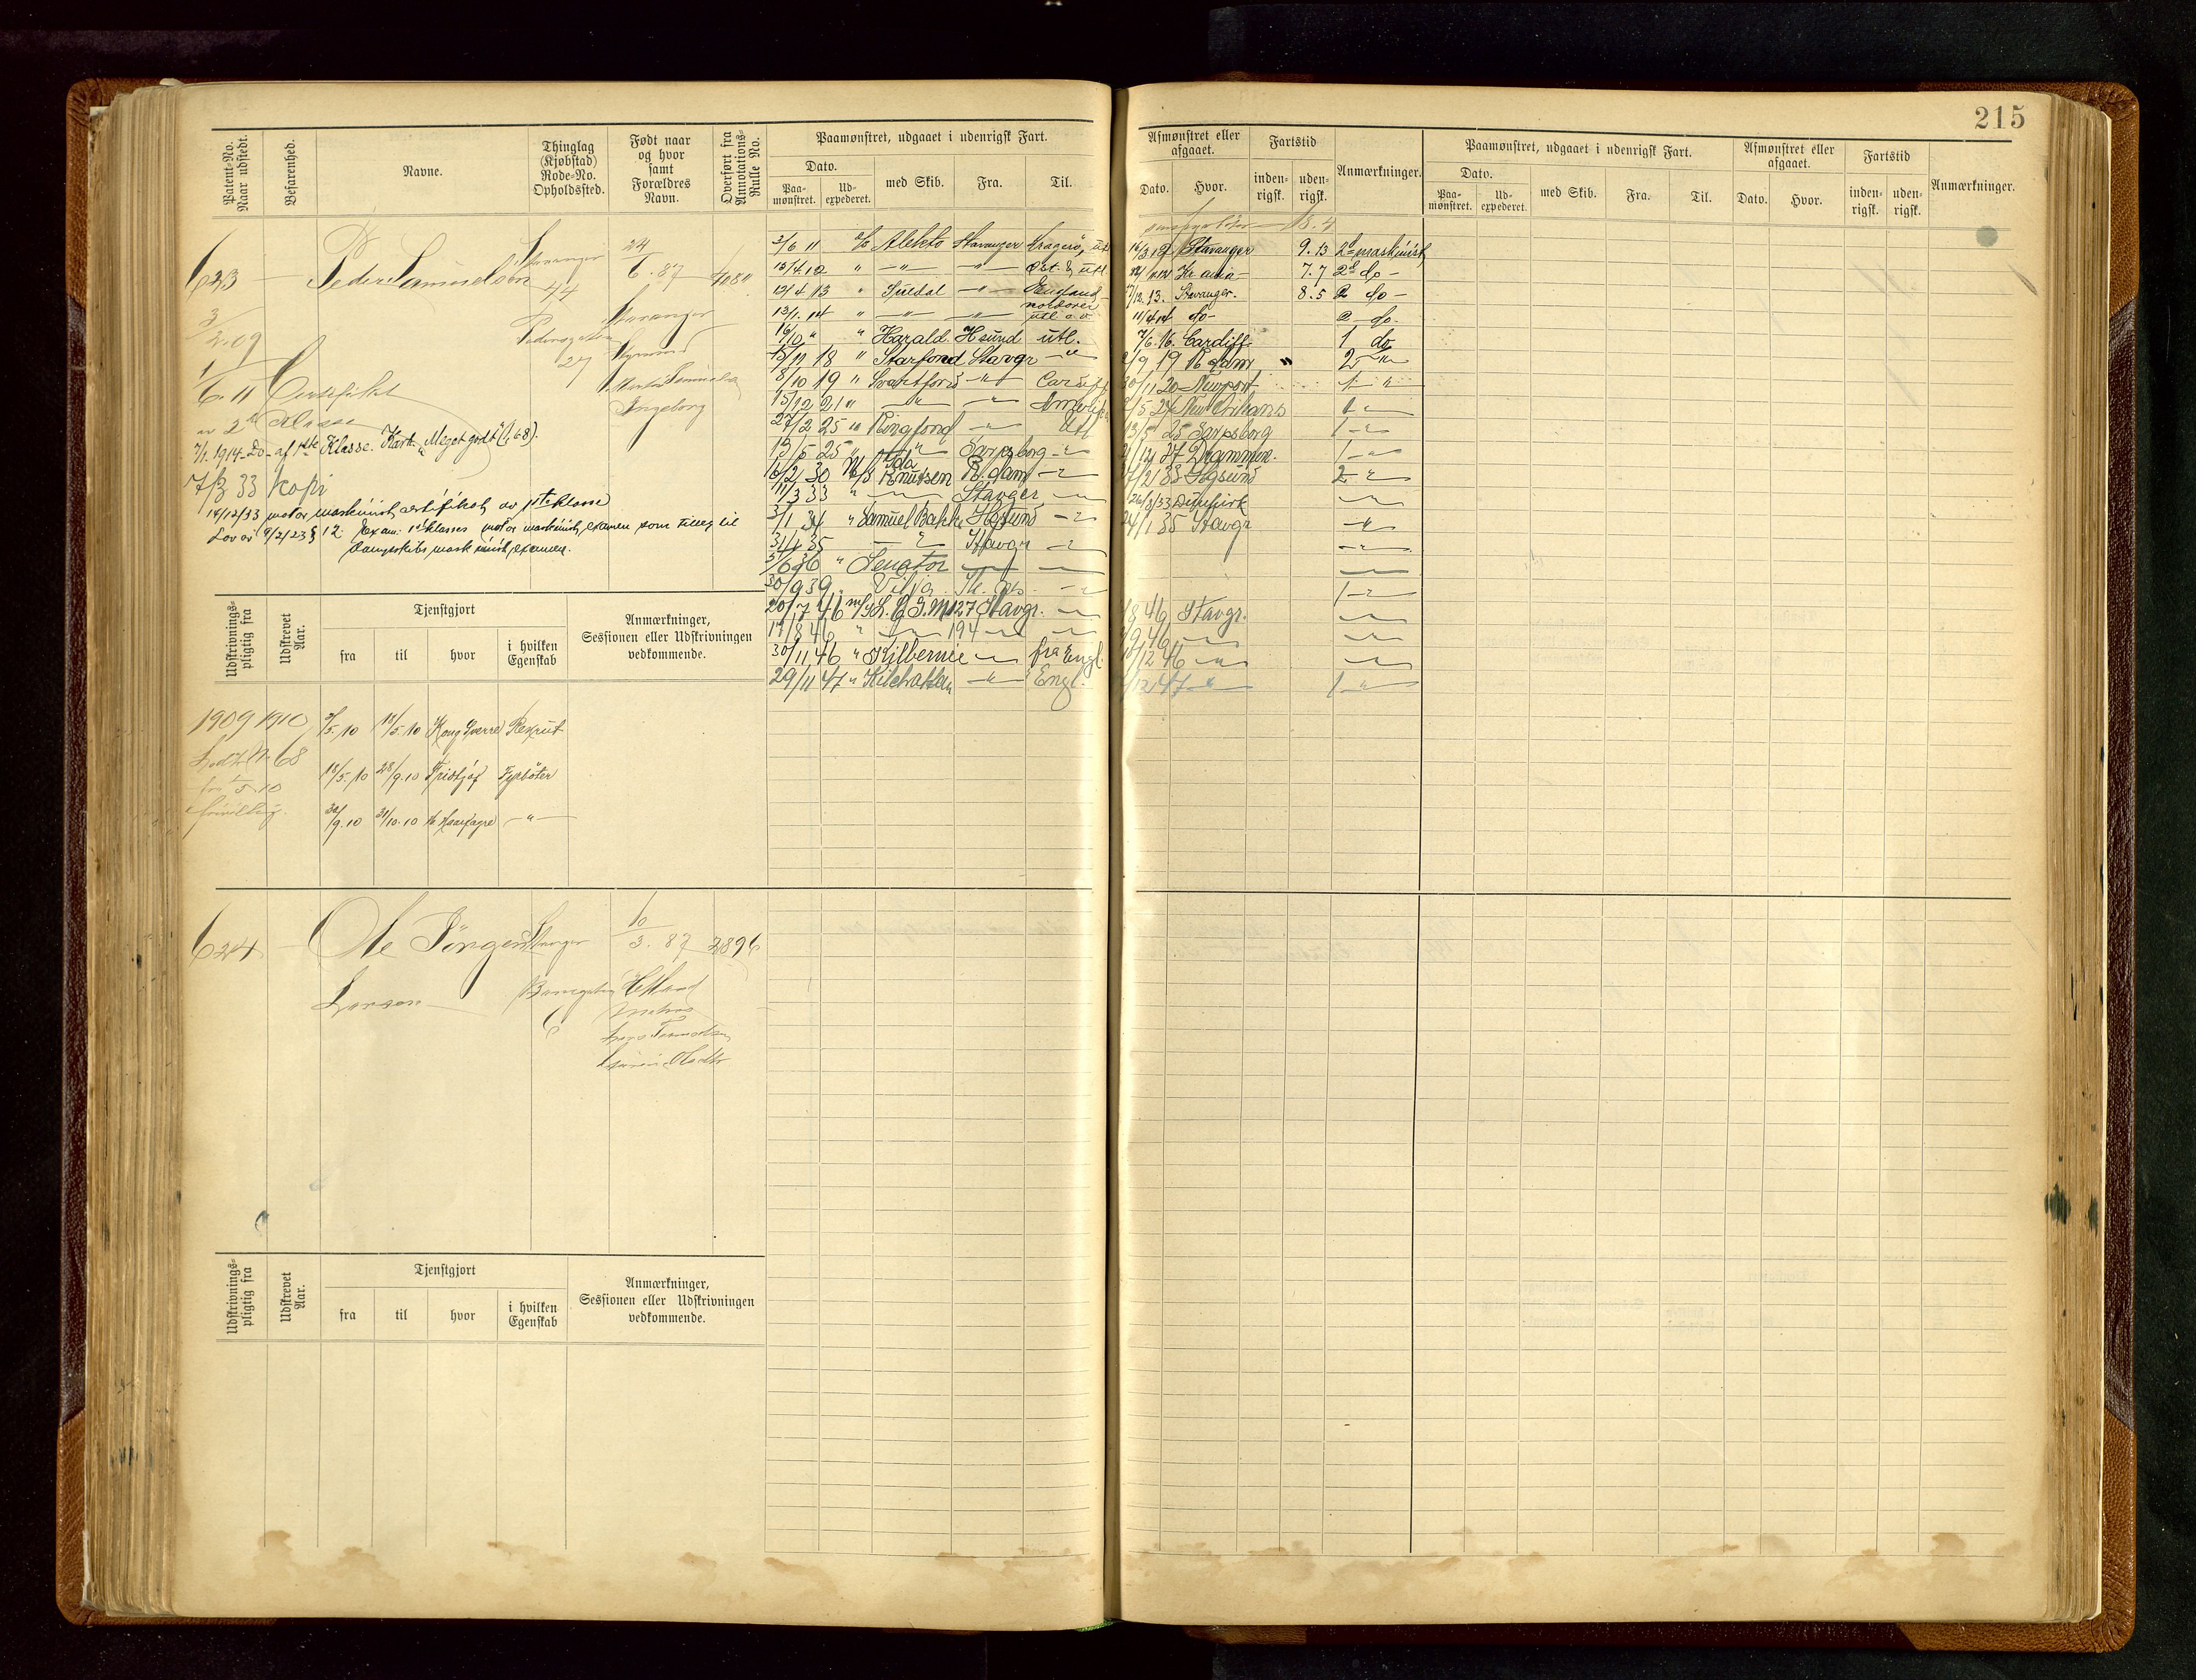 215
Patent-No. Naar udstedt.
Befarenhed.
Navne.
Thinglag (Kjøbstad) Rode-No. Opholdssted.
Født naar og hvor samt Forældres Navn.
Overført fra Annotations-Rulle No.
Paamønstret, udgaaet i udenrigsk Fart.
Dato.
Paa-mønstret.
Ud-expederet.
med Skib.
Fra.
Til.
Afmønstret eller afgaaet.
Dato.
Hvor.
Fartstid
inden-rigsk.
uden-rigsk.
Anmærkninger.
Paamønstret, udgaaet i udenrigsk Fart.
Dato.
Paa-mønstret.
Ud-expederet.
med Skib.
Fra.
Til.
Afmønstret eller afgaaet.
Dato.
Hvor.
Fartstid
inden-rigsk.
uden-rigsk.
Anmærkninger.
623 — Peder Samuelsen
Stavanger 44
Pedersgaten 27
24/6. 87
Stavanger
Ingeborg
3/2.09
1/6.11 Certifikat
av 2den Klasse
7/1. 1914 - Do - af 1ste Klasse. Kart. "Meget godt" (1,68).
7/3 33 Kopi
14/12/33 motor maskinist certifikat av 1ste klasse
Lov av 9/2/23 § 12. Exam: 1st klasses motor maskinist examen som tillæg til
Dampskibs maskinist examen.
3/6 11 Alekto Stavanger Kragerø, utl
13/4.12 " —"— —"— Øst. & utl.
12/4 13 " Suldal —"— England
13/1. 14 " —"— —"— utl
16/10 " " Harald H.sund utl.
15/11 18 " Starfond Stavgr —"—
8/10 19 " Svartfond —"— Cardiff
15/12 21 " —"— —"—
27/2 25 " Ringfond —"— Utl
15/5 25 " —"— Sarpsborg —"—
15/2 30 M/S Ida Knutsen R.dam —"—
11/3 33 " —"— Stavger —"—
3/1 34 " Samuel Bakke H.sund —"—
3/4 35 —"— Stavgr —"—
5/6 36 " Senator —"— —"—
30/9 39. Vilja
20/7 46 Stavgr. —"—
17/8 46 " —"— 194 —"— —"—
30/11 46 " Kilbernie —"— fra Engl.
29/11 47 " Kilchattan —"— Engl.
18.4
16/3 12 Stavanger 9.13 2d maskinist
Kr.ania — 7.7 2d do —
13. Stavanger. 8.5 2 do —
11/4 14 do — 2 do.
7/6 16. Cardiff. 1 do
9 19 R.dam " 2 —"—
30/11 20 Newport 1 —"—
5 24 New Orleans 1 —"—
13/5 25 Sarpsborg 1 —"—
27 Drammen. 1 —"—
2 33 H.gsund 2 —"—
33 Dunkirk —"—
24/1 35 Stavgr —"—
1 —"—
8 46 Stavgr. —"—
9 46 —"— —"—
12 46 —"— —"—
12 47 —"— 1 —"—
Udskrivnings-pligtig fra
Udskrevet Aar.
Tjenstgjort
fra
til
hvor
i hvilken Egenskab
Anmærkninger, Sessionen eller Udskrivningen vedkommende.
1909 1910 3/5.10 18/5.10 Kong Sverre Rekrut
18/5.10 28/9.10 Fridtjof Fyrbøter
30/9.10 31/10.10 Haarfagre —"—
frivillig.
624 — Ole Jörgen
Larsen
Stavanger
6
10/3. 87 2896
Hetland
Udskrivnings-pligtig fra
Udskrevet Aar.
Tjenstgjort
fra
til
hvor
i hvilken Egenskab
Anmærkninger, Sessionen eller Udskrivningen vedkommende.